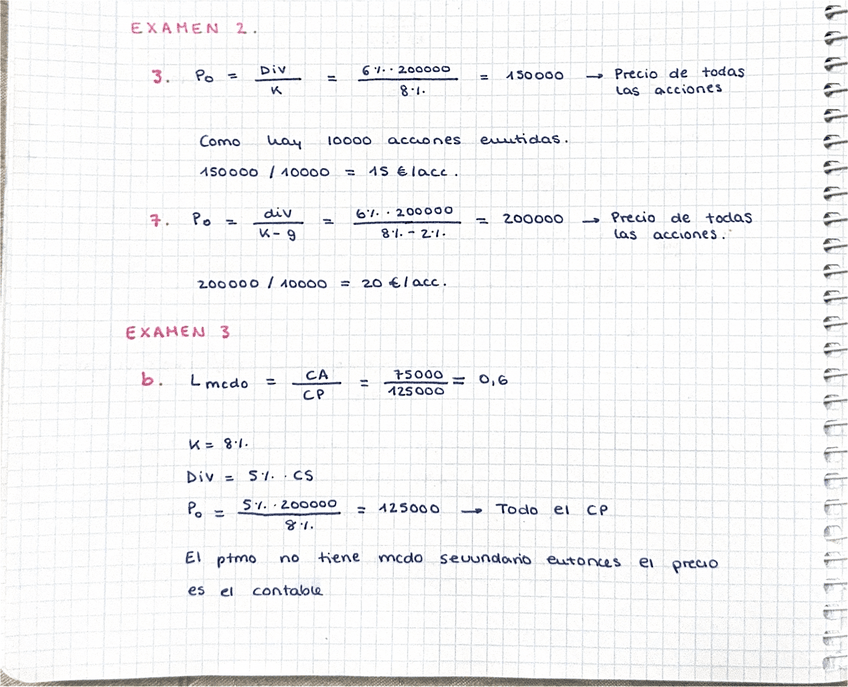 EXAMEN 2.
3. P₀ = Div / K = 6% · 200000 / 8% = 150000 → Precio de todas las acciones
Como hay 10000 acciones emitidas.
150000 / 10000 = 15 €/acc.
7. P₀ = div / K - g = 6% · 200000 / 8% - 2% = 200000 → Precio de todas las acciones.
200000 / 10000 = 20 €/acc.
EXAMEN 3
b. L mcdo = CA / CP = 75000 / 125000 = 0,6
K = 8%.
Div = 5% · CS
P₀ = 5% · 200000 / 8% = 125000 → Todo el CP
El ptmo no tiene mcdo secundario entonces el precio
es el contable